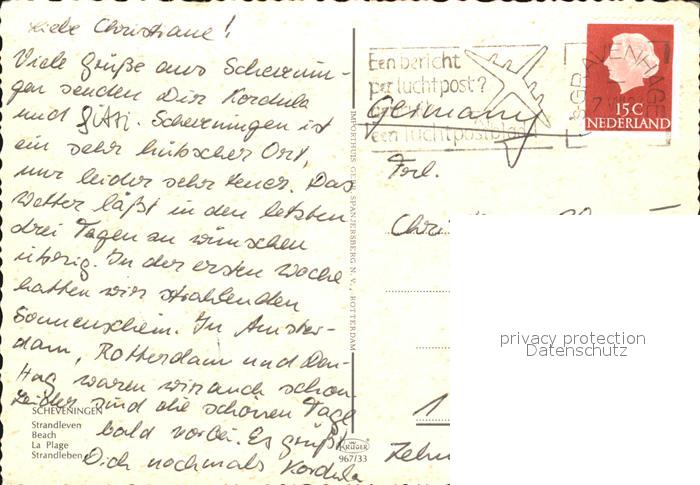 Liebe Christiane!
Viele Grüße aus Schevenin-
gen senden Dir Kordula
und Gitti. Scheveningen ist
ein sehr hübscher Ort,
nur leider sehr teuer. Das
Wetter läßt in den letzten
drei Tagen zu wünschen
übrig. In der ersten Woche
hatten wir strahlenden
Sonnenschein. In Amster-
dam, Rotterdam und Den-
Hag waren wir auch schon.
Leider sind die schönen Tage
bald vorbei. Es grüßt
Dich nochmals Kordula
SCHEVENINGEN
Strandleven
Beach
La Plage
Strandleben
IMPORTHUIS GEBR. SPANJERSBERG N.V., ROTTERDAM
KRÜGER
967/33
Een bericht
per luchtpost?
een luchtpostblad
'S-GRAVENHAGE
15 C
NEDERLAND
Germany
Frl.
1
privacy protection
Datenschutz